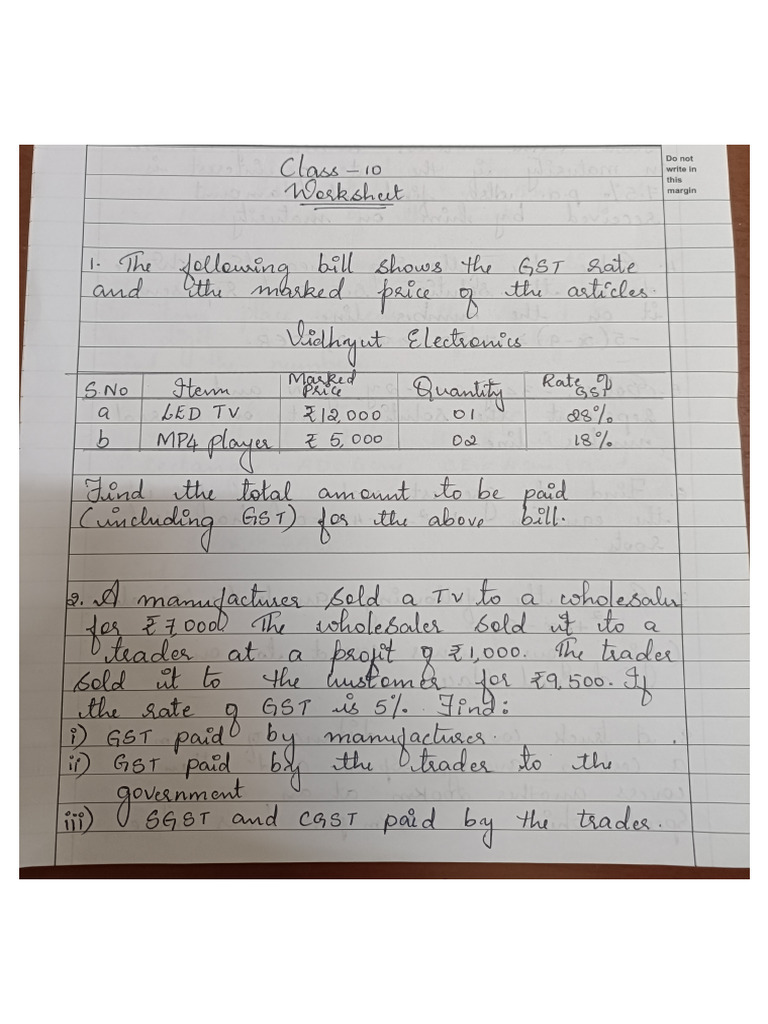 Do not
write in
this
margin
Class – 10
Worksheet
1. The following bill shows the GST rate
and the marked price of the articles.
Vidhyut Electronics
S.No Item Marked Price Quantity Rate of GST
a LED TV ₹12,000 01 28%
b MP4 player ₹ 5,000 02 18%
Find the total amount to be paid
(including GST) for the above bill.
2. A manufacturer sold a TV to a wholesaler
for ₹7000. The wholesaler sold it to a
trader at a profit of ₹1,000. The trader
sold it to the customer for ₹9,500. If
the rate of GST is 5%. Find:
i) GST paid by manufacturer.
ii) GST paid by the trader to the
government
iii) SGST and CGST paid by the trader.